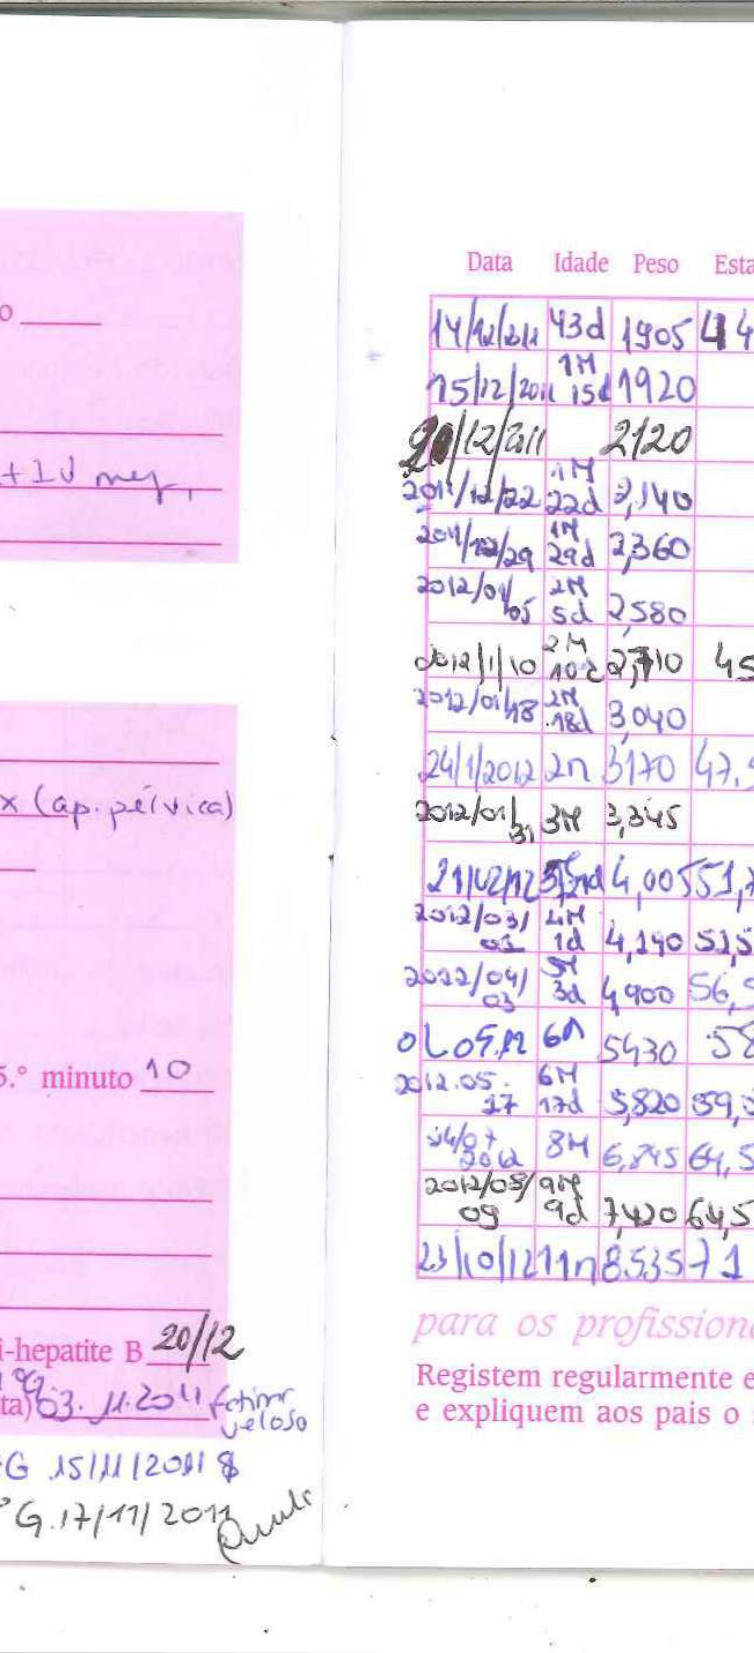 o
+IV neg,
x (ap. pélvica)
5.º minuto 10
i-hepatite B 20/12
ta) 03.11.2011 Fatima
Veloso
G 15/11/2011
G. 17/11/2011
Data Idade Peso Esta
14/12/2011 43d 1905 44
15/12/2011 1M 15d 1920
20/12/2011 2120
2011/12/22 1M 22d 2,140
2011/12/29 1M 29d 2,360
2012/01/05 2M 5d 2,580
2012/1/10 2M 10d 2,710 45
2012/01/18 2M 18d 3,040
24/1/2012 2n 3170 47,
2012/01/31 3M 3,345
21/02/12 4,005 51,
2012/03/01 4M 1d 4,190 51,5
2022/04/03 5M 3d 4,900 56,5
6n 5430 58
2012.05.17 6M 17d 5,820 59,
04/07 2012 8M 6,845 64,5
2012/08/09 9M 9d 7,420 64,5
23/10/12 11n 8.535 71
para os profission
Registem regularmente e
e expliquem aos pais o